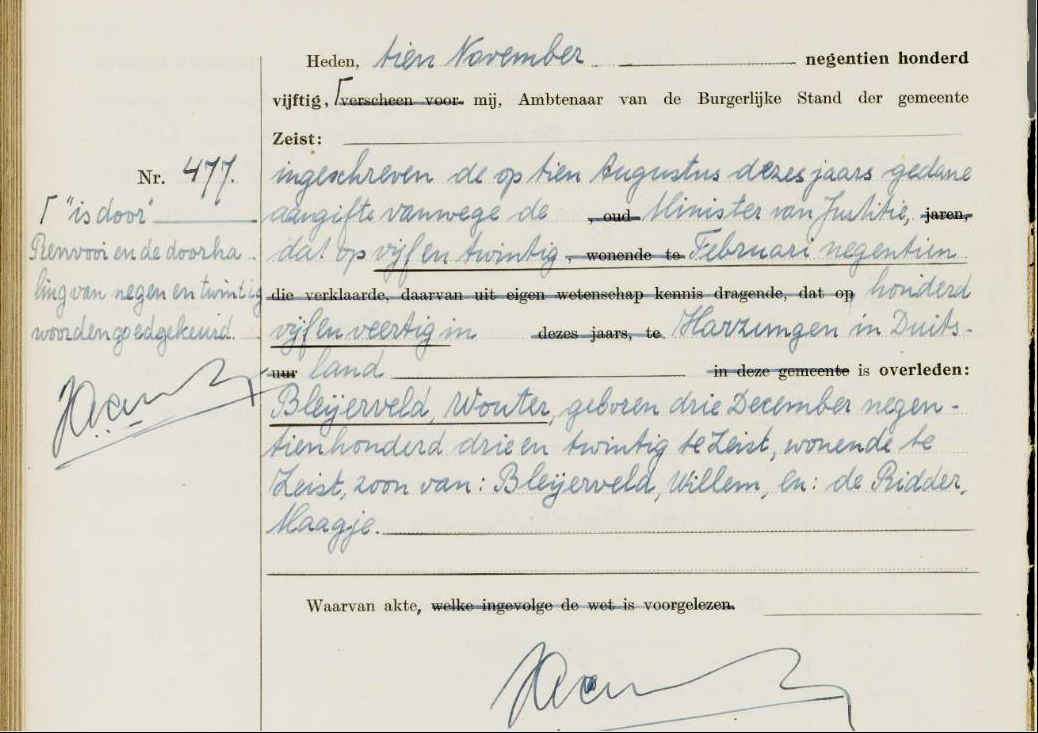 Heden, tien November negentien honderd
vijftig, ⌈verscheen voor mij, Ambtenaar van de Burgerlijke Stand der gemeente
Zeist:
Nr. 477.
⌈ "is door"
Renvooi en de doorha-
ling van negen en twintig
woorden goedgekeurd.
ingeschreven de op tien Augustus dezes jaars gedane
aangifte vanwege de , oud Minister van Justitie, jaren,
dat op vijf en twintig , wonende te Februari negentien
die verklaarde, daarvan uit eigen wetenschap kennis dragende, dat op honderd
vijf en veertig in dezes jaars, te Harzungen in Duits-
uur land in deze gemeente is overleden:
Bleijerveld, Wouter, geboren drie December negen-
tienhonderd drie en twintig te Zeist, wonende te
Zeist, zoon van: Bleijerveld, Willem, en: de Ridder,
Maagje.
Waarvan akte, welke ingevolge de wet is voorgelezen.